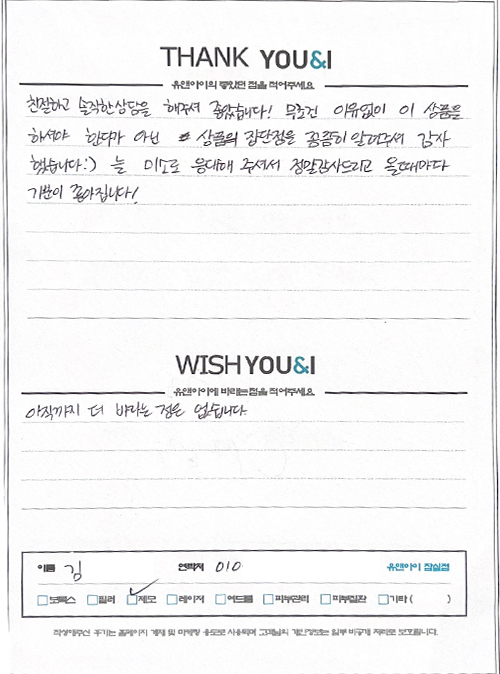 THANK YOU&I
유앤아이의 좋았던 점을 적어주세요
친절하고 솔직한 상담을 해주셔 좋았습니다! 무조건 이유없이 이 상품을
하셔야 한다가 아닌 상품의 장단점을 꼼꼼히 알려주셔 감사
했습니다:) 늘 미소로 응대해 주셔서 정말감사드리고 올때마다
기분이 좋아집니다!
WISH YOU&I
유앤아이에 바라는 점을 적어주세요
아직까지 더 바라는 점은 없습니다
이름 김 연락처 010 유앤아이 잠실점
보톡스 필러 제모 레이저 여드름 피부관리 피부질환 기타 ( )
작성해주신 후기는 홈페이지 게재 및 마케팅 용도로 사용되며 고객님의 개인정보는 일부 비공개 처리로 보호됩니다.